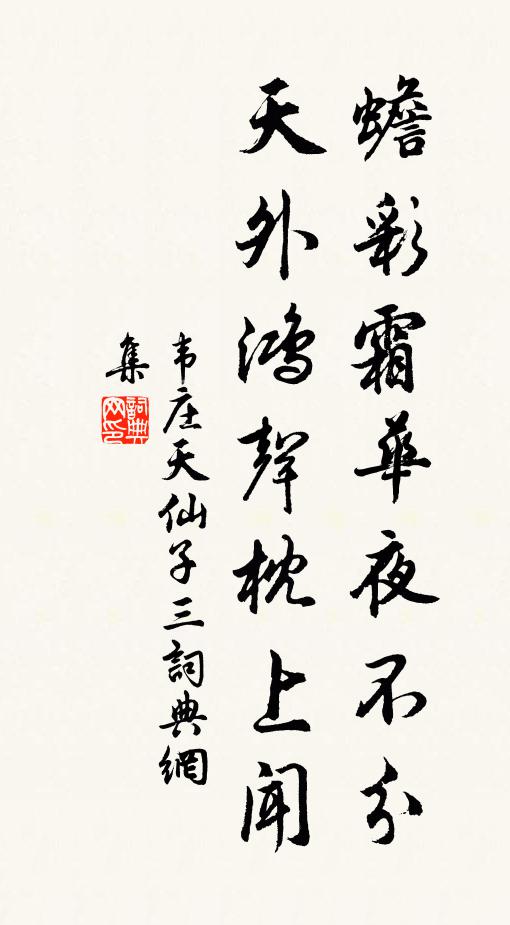 蟾彩霜華夜不分
天外鴻聲枕上聞
韦庄天仙子三詞典網
集
詞典网印